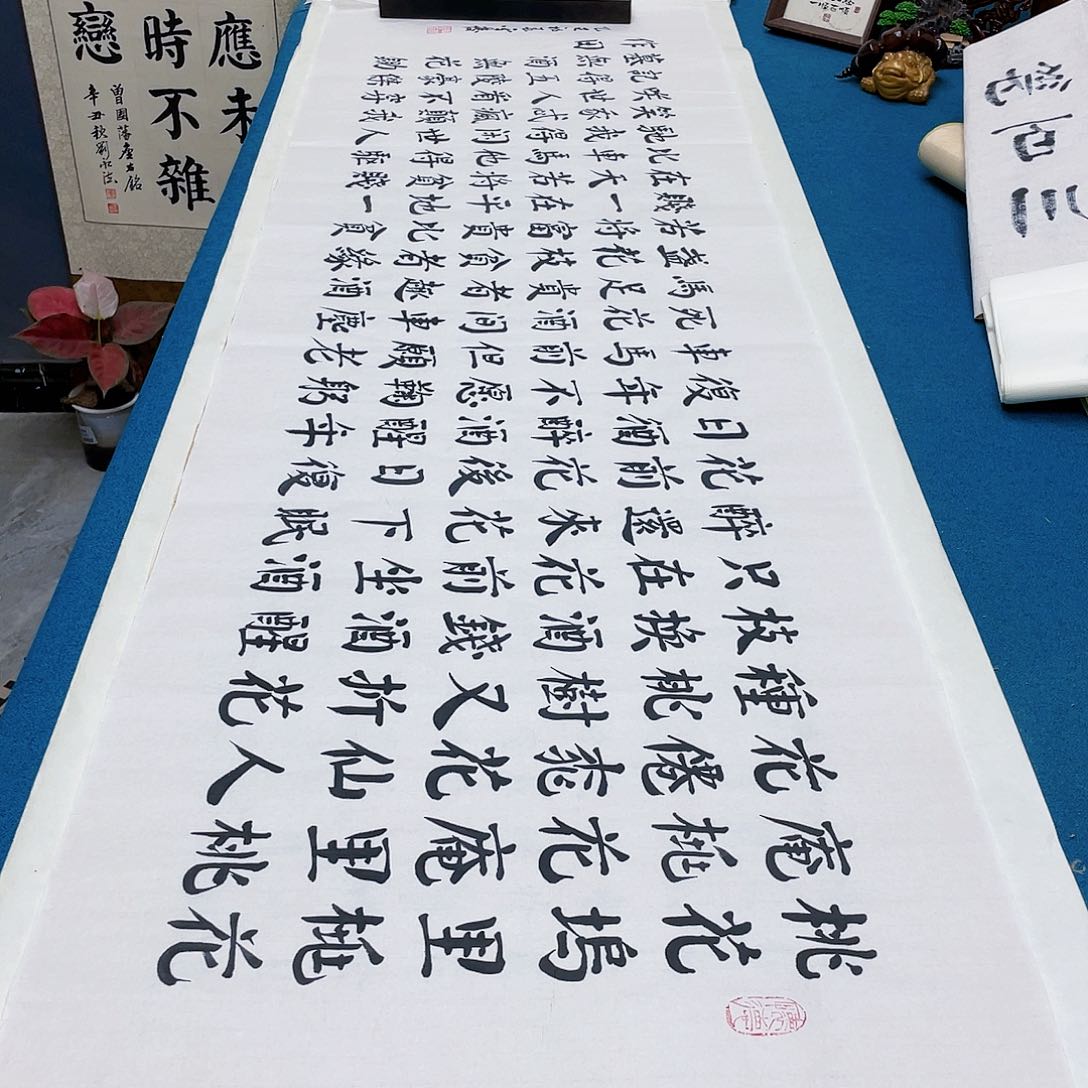 應未
時不雜
戀
曾國藩座右銘
百川
桃花塢里桃花
庵桃花庵里桃
花僊桃花仙人
種桃樹又折花
枝換酒錢酒醒
只在花前坐酒
醉還來花下眠
花前花後日復
日酒醉酒醒年
復年不愿鞠躬
車馬前但願老
死花酒間車塵
馬足貴者趣酒
盞花枝貧者緣
若將富貴比貧
賤一在平地一
在天若將貧賤
比車馬他得驅
馳我得閒世人
笑我忒瘋顛我
咲世人看不穿
記得五陵豪傑
墓無花無酒鋤
作田